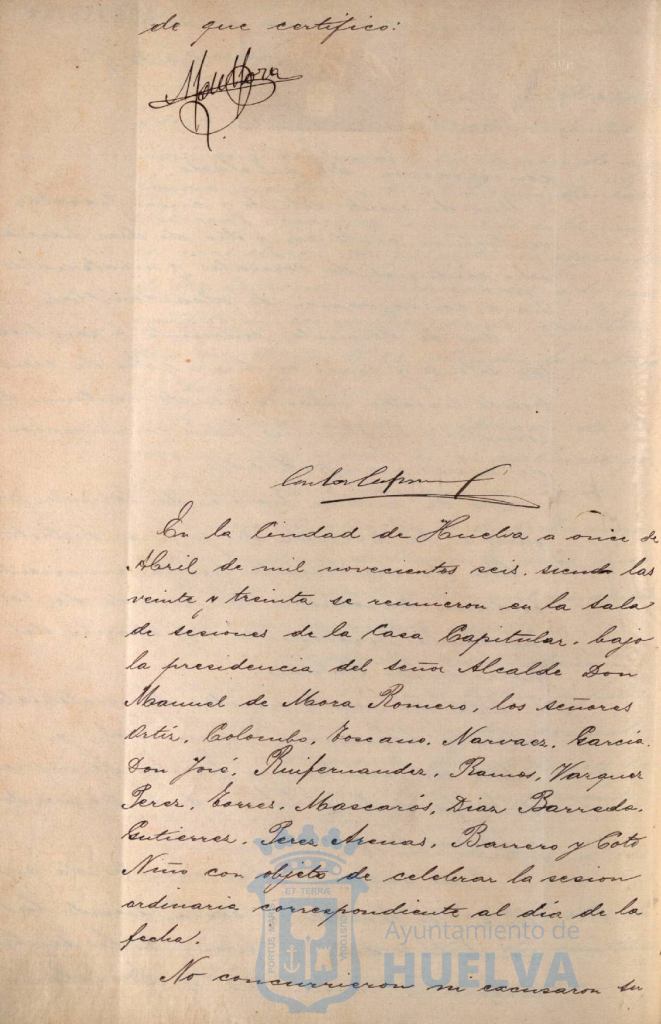 de que certifico:
M. de Mora
En la Ciudad de Huelva a once de
Abril de mil novecientos seis, siendo las
veinte y treinta se reunieron en la sala
de sesiones de la Casa Capitular, bajo
la presidencia del señor Alcalde Don
Manuel de Mora Romero, los señores
Ortiz, Colombo, Toscano, Narvaez, Garcia
Don José, Ruifernandez, Ramos, Vazquez
Perez, Torres, Mascarós, Diaz Barreda,
Gutierrez, Perez Arenas, Barrero y Coto
Niño con objeto de celebrar la sesion
ordinaria correspondiente al dia de la
fecha.
No concurrieron ni excusaron su
ET TERRÆ
PORTUS MARIS
CUSTODIA
Ayuntamiento de
HUELVA